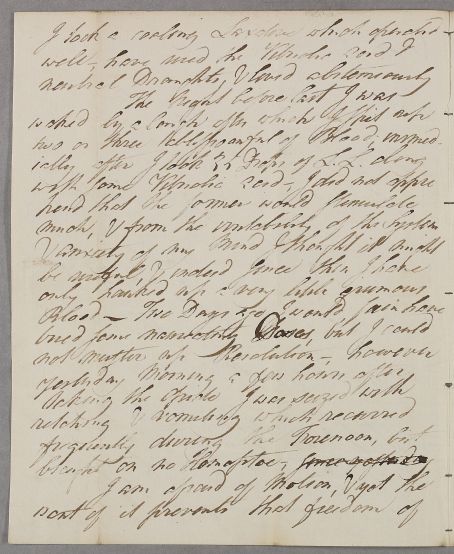 I took a cooling Laxative which operated
well – have used the Vitriolic Acid &
neutral Draughts, & lived abstemiously
The Night before last I was
waked by a Cough after which I spit up
two or three tablespoonful of Blood, immed-
iately after I took Drops of L. L. along
with some Vitriolic Acid – I did not appre
hend that the former would stimulate
much, & from the irritability of the System
& anxiety of my Mind I thought it might
be useful, & indeed since then I have
only hawked up a very little grumous
Blood – Two Days ago I would fain have
tried some nauseating Doses, but I could
not muster up Resolution – however
yesterday Morning a few hours after
taking the I was seized with
retching & vomiting which recurred
frequently during the Forenoon, but
brought on no Hemoptoe,
I am afraid of Motion, & yet the
want of it prevents that freedom of